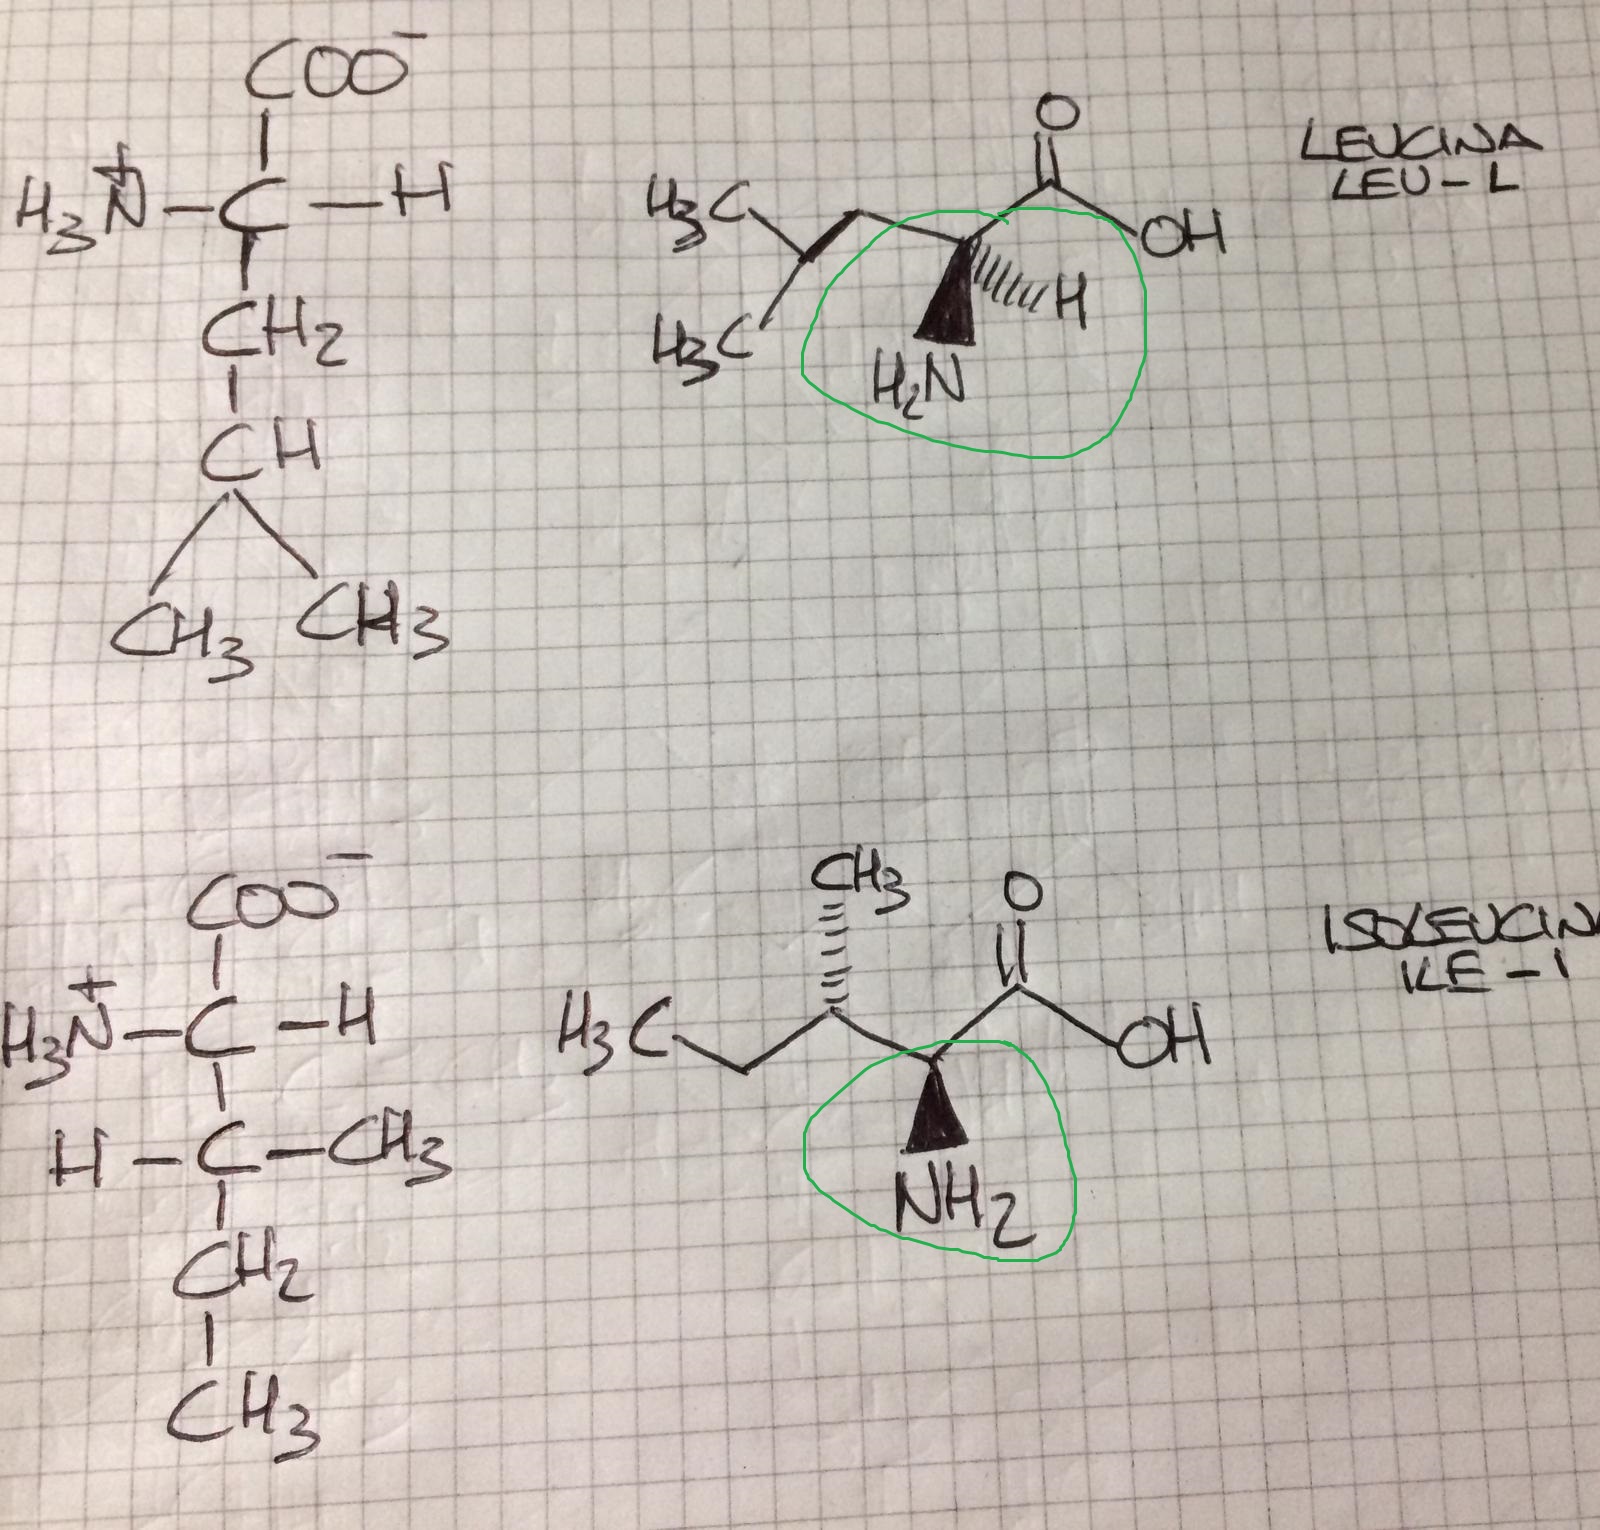 COO⁻
H₃N⁺–C–H
CH₂
CH
CH₃ CH₃
O
H₃C
OH
H
H₃C
H₂N
LEUCINA
LEU-L
COO⁻
H₃N⁺–C–H
H–C–CH₃
CH₂
CH₃
CH₃
O
H₃C
OH
NH₂
ISOLEUCIN
ILE-I